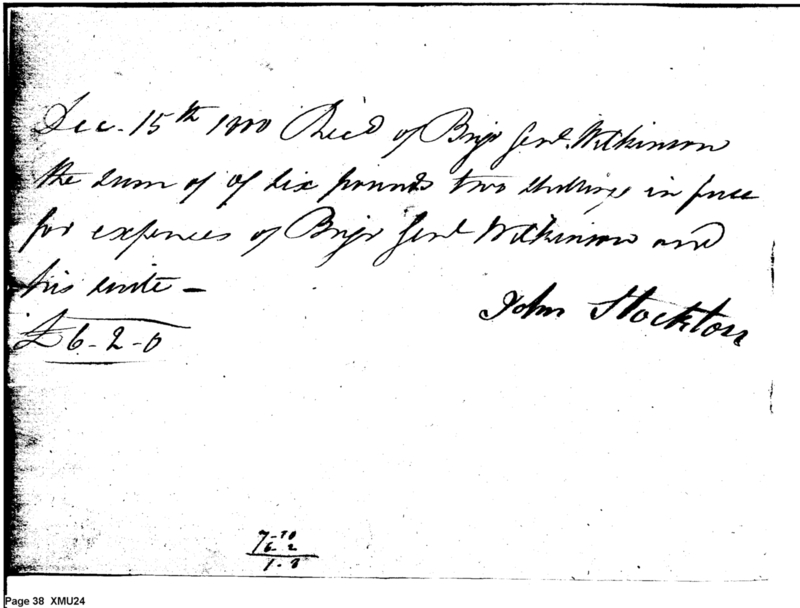 Dec. 15th 1800 Recd of Brigr Genl. Wilkinson
the sum of of six pounds two shillings in full
for expences of Brigr Genl Wilkinson and
his suite -
£ 6-2-0
John Stockton
7-10
6-2
1-8
Page 38 XMU24